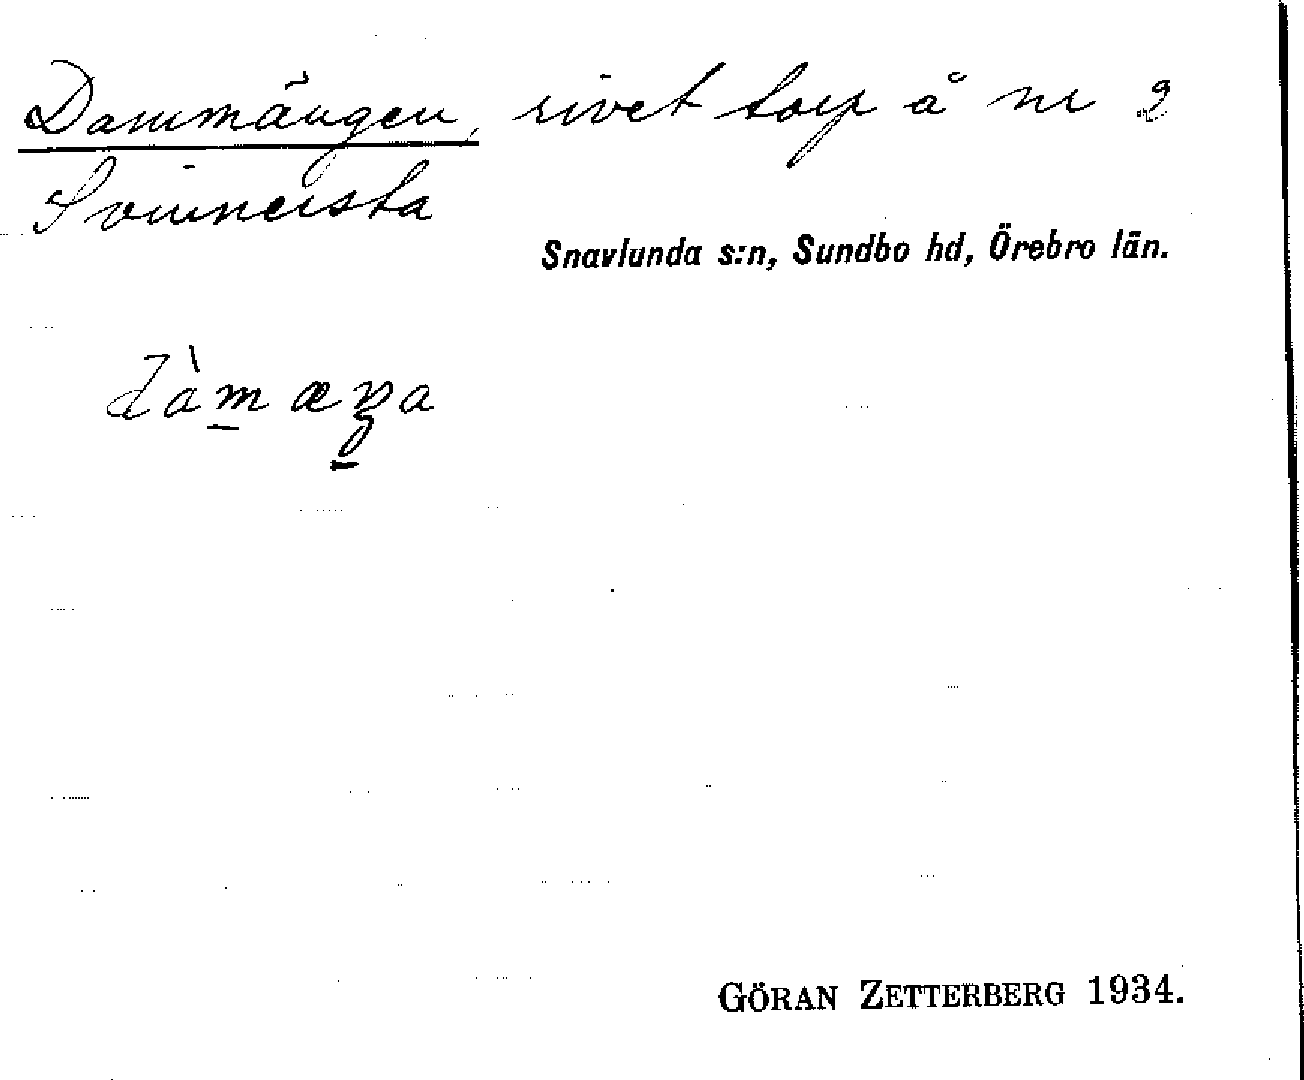 Dammängen, rivet torp å nr 2
Svinnersta
Snavlunda s:n, Sundbo hd, Örebro län.
dàmæŋa
GÖRAN ZETTERBERG 1934.